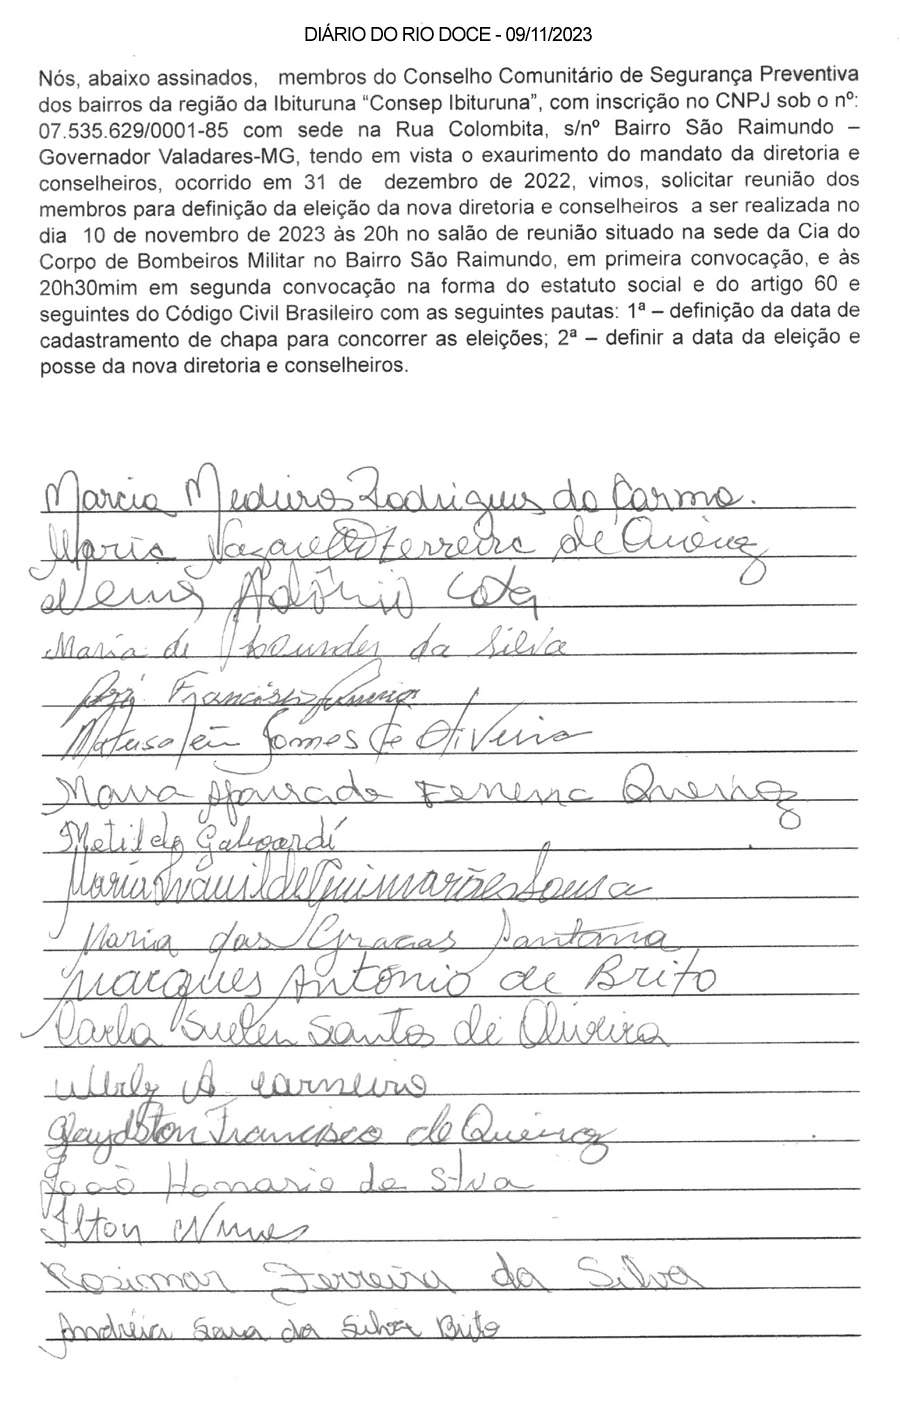 DIÁRIO DO RIO DOCE - 09/11/2023
Nós, abaixo assinados, membros do Conselho Comunitário de Segurança Preventiva
dos bairros da região da Ibituruna “Consep Ibituruna”, com inscrição no CNPJ sob o nº:
07.535.629/0001-85 com sede na Rua Colombita, s/nº Bairro São Raimundo –
Governador Valadares-MG, tendo em vista o exaurimento do mandato da diretoria e
conselheiros, ocorrido em 31 de dezembro de 2022, vimos, solicitar reunião dos
membros para definição da eleição da nova diretoria e conselheiros a ser realizada no
dia 10 de novembro de 2023 às 20h no salão de reunião situado na sede da Cia do
Corpo de Bombeiros Militar no Bairro São Raimundo, em primeira convocação, e às
20h30mim em segunda convocação na forma do estatuto social e do artigo 60 e
seguintes do Código Civil Brasileiro com as seguintes pautas: 1ª – definição da data de
cadastramento de chapa para concorrer as eleições; 2ª – definir a data da eleição e
posse da nova diretoria e conselheiros.
Marcia Medeiros Rodrigues do Carmo.
Maria Nazareth Ferreira de Queiroz
Antônio Cota
Maria de Lourdes da Silva
José Francisco
Matusalém Gomes de Oliveira
Maria Aparecida Ferreira Queiroz
Metilde
Maria Guimarães Sousa
Maria das Graças Santana
Marques Antônio de Brito
Carla Suelen Santos de Oliveira
A Carneiro
Glaydston Francisco de Queiroz
João Honorio da Silva
Ilton Nunes
Rosimar Ferreira da Silva
Andréia Sara da Silva Brito